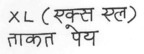 XL (एक्स एल)
ताकत पेय